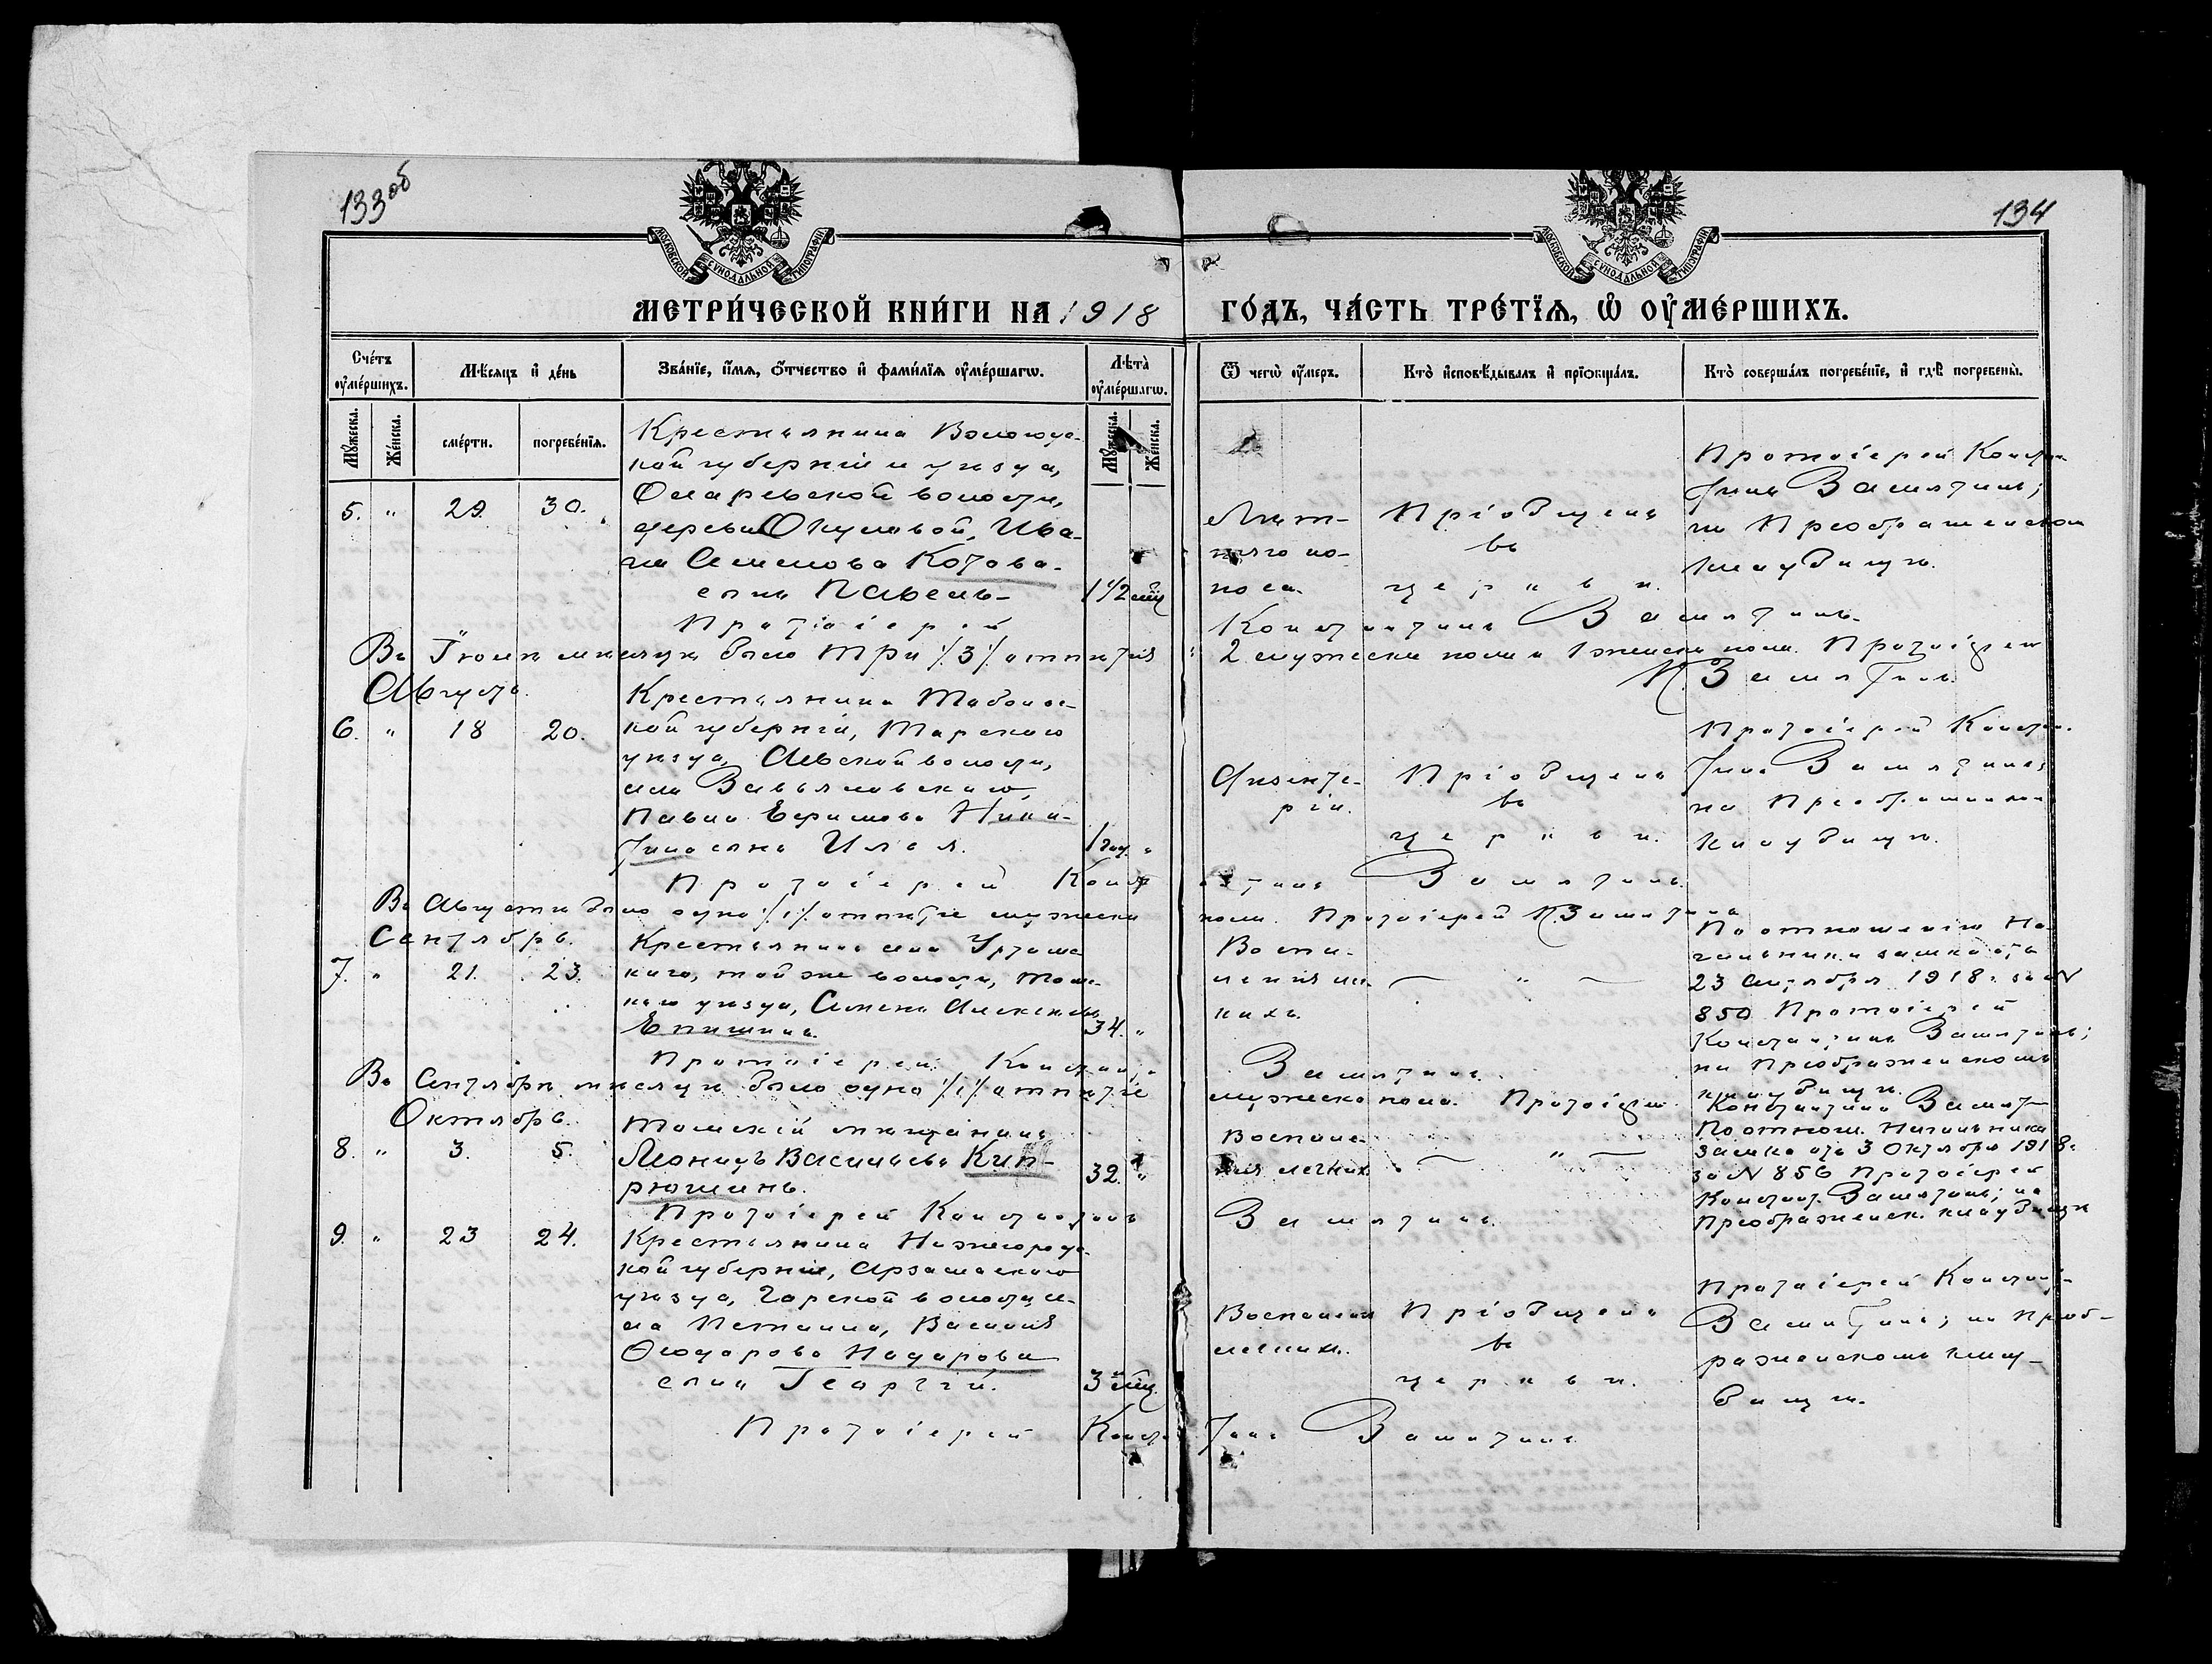 133об
134
МОСКОВСКОЙ СУНОДАЛЬНОЙ ТИПОГРАФІИ
МОСКОВСКОЙ СУНОДАЛЬНОЙ ТИПОГРАФІИ
МЕТРИ́ЧЕСКОЙ КНИ́ГИ НА 1918
ГО́ДЪ, ЧА́СТЬ ТРЕ́ТЇѦ, Ѡ҆ ОУ҆МЕ́РШИХЪ.
Сче́тъ оу҆ме́ршихъ.
Мѣ́сяцъ и҆ де́нь
Зва́нїе, и҆́мѧ, ѻ҆́тчество и҆ фами́лїѧ оу҆ме́ршагѡ.
Лѣта̀ оу҆ме́ршагѡ.
Ѿ чегѡ̀ оу҆́меръ.
Кто̀ и҆сповѣ́дывалъ и҆ прїѡбща́лъ.
Кто̀ соверша́лъ погребе́нїе, и҆ гдѣ̀ погребены̀.
Мꙋ́жеска.
Же́нска.
сме́рти.
погребе́нїѧ.
Мꙋ́жеска.
Же́нска.
Крестьянина Вологод-
ской губерніи и уѣзда,
волости,
5. " 29. 30.
деревни Окуловой, Ива-
на Семенова Котова-
сынъ Павелъ-
1 1/2 мѣц
Лѣт-
няго по-
носа.
Пріобщенъ
въ
церкви.
Протоіерей Констан-
тинъ Замятинъ;
на Преображенском
кладбищѣ.
Протоіерей
Константинъ Замятинъ.
Въ Іюлѣ мѣсяцѣ было три /3/ отпѣтія
2 мужеска пола и 1 женска пола. Протоіерей
К. Замятинъ
Августъ.
6. " 18 20.
Крестьянина Тобольс-
кой губерніи, Тарскаго
уѣзда, волости,
села Завьяловскаго,
Павла Ефимова Ники-
тина сынъ Илья.
1 год. "
Дизенте-
рія.
Пріобщенъ
въ
церкви.
Протоіерей Констан-
тинъ Замятинъ;
на Преображенском
кладбищѣ.
Протоіерей Конст
антинъ Замятинъ.
Въ Августѣ было одно /1/ отпѣтіе мужеска
пола. Протоіерей К. Замятинъ
Сентябрь.
7. " 21. 23.
Крестьянинъ села
каго, той же волости, Том-
скаго уѣзда, Семенъ Алексѣевъ
Епишинъ.
34. "
Воспа-
ленія лег-
кихъ.
— " —
По отношенію На-
чальника замка отъ
23 Сентября 1918 г. за N
850 Протоіерей
Константинъ Замятинъ;
на Преображенскомъ
кладбищѣ.
Протоіерей Константинъ
Замятинъ.
Въ Сентябрѣ мѣсяцѣ было одно /1/ отпѣтіе
мужеска пола. Протоіерей
Константинъ Замят
Октябрь.
8. " 3. 5.
Томскій мѣщанинъ
Леонидъ Васильевъ Кип-
рюшинъ.
32. "
Воспале-
нія легких.
— " —
По отнош. Начальника
замка отъ 3 Октября 1918 г.
за N 856 Протоіерей
Констант. Замятинъ; на
Преображенск. кладбищѣ
Протоіерей Константинъ
Замятинъ.
9. " 23 24.
Крестьянина Нижегородс-
кой губерніи, Арзамаскаго
уѣзда, волости се-
ла Василія
Ѳеодорова
сынъ Георгій.
3 мѣц.
Воспаленія
легких.
Пріобщенъ
въ
церкви.
Протоіерей Констант-
Замятинъ; на Преоб-
раженскомъ клад-
бищѣ.
Протоіерей Констан
тинъ Замятинъ